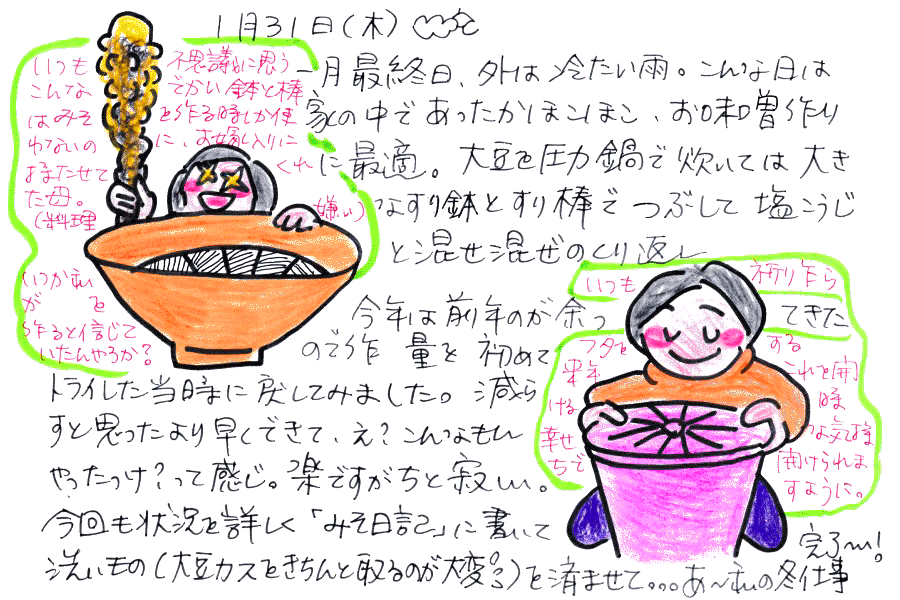 1月31日(木)
一月最終日、外は冷たい雨。こんな日は
家の中であったかほんほん、お味噌作り
に最適。大豆を圧力鍋で炊いては大き
なすり鉢とすり棒でつぶして塩こうじ
と混ぜ混ぜのくり返し
今年は前年のが余っ
てきた
ので作 量を初めて
トライした当時に戻してみました。減ら
すと思ったより早くできて、え?こんなもん
やったっけ?って感じ。楽ですがちと寂しい。
今回も状況を詳しく「みそ日記」に書いて
洗いもの(大豆カスをきちんと取るのが大変)を済ませて。。。あ〜私の冬仕事
完了〜!
不思議に思う
でかい鉢と棒
を作る時しか使
に、お嫁入りに
くれ
嫌い)
いつも
こんな
はみそ
わないの
持たせて
た母。
(料理
いつか私
が を
作ると信じて
いたんやろか?
いつも 祈り乍ら
フタを する
来年 これを開
ける 時
幸せ な気持
ちで 開けられま
すように。